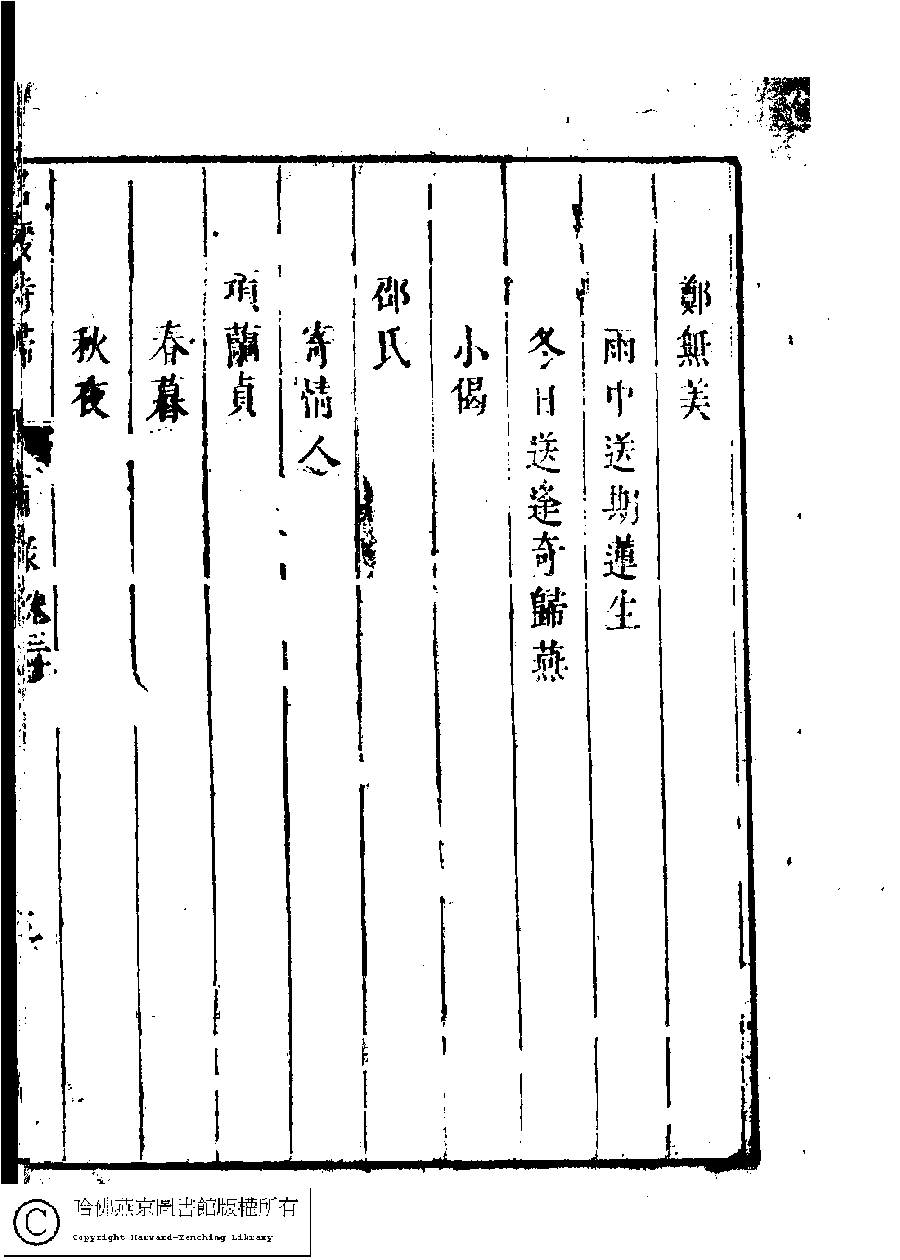 鄭無美
雨中送期蓮生
冬日送逢奇歸燕
小偈
邵氏
寄情人
項蘭貞
春暮
秋夜
名媛詩歸
卷三
哈佛燕京圖書館版權所有
Copyright Harvard-Yenching Library